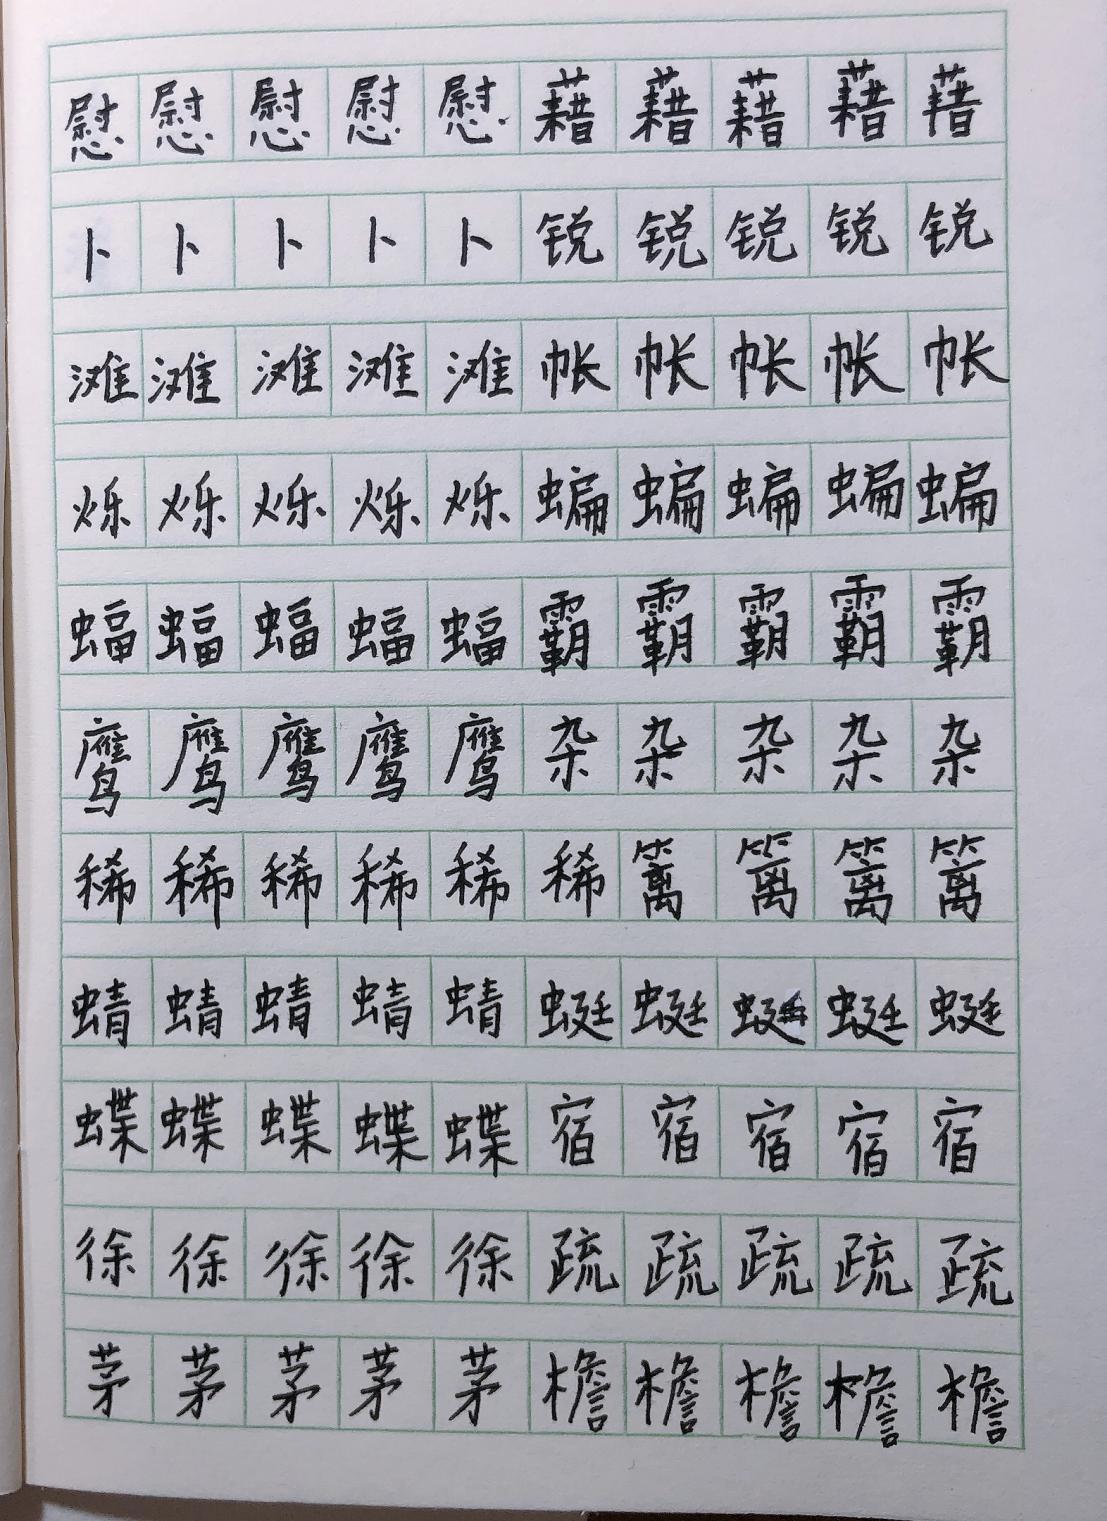 慰慰慰慰慰藉藉藉藉藉
卜卜卜卜卜锐锐锐锐锐
滩滩滩滩滩帐帐帐帐帐
烁烁烁烁烁蝙蝙蝙蝙蝙
蝠蝠蝠蝠蝠霸霸霸霸霸
鹰鹰鹰鹰鹰杂杂杂杂杂
稀稀稀稀稀稀篱篱篱篱
蜻蜻蜻蜻蜻蜓蜓蜓蜓蜓
蝶蝶蝶蝶蝶宿宿宿宿宿
徐徐徐徐徐疏疏疏疏疏
茅茅茅茅茅檐檐檐檐檐